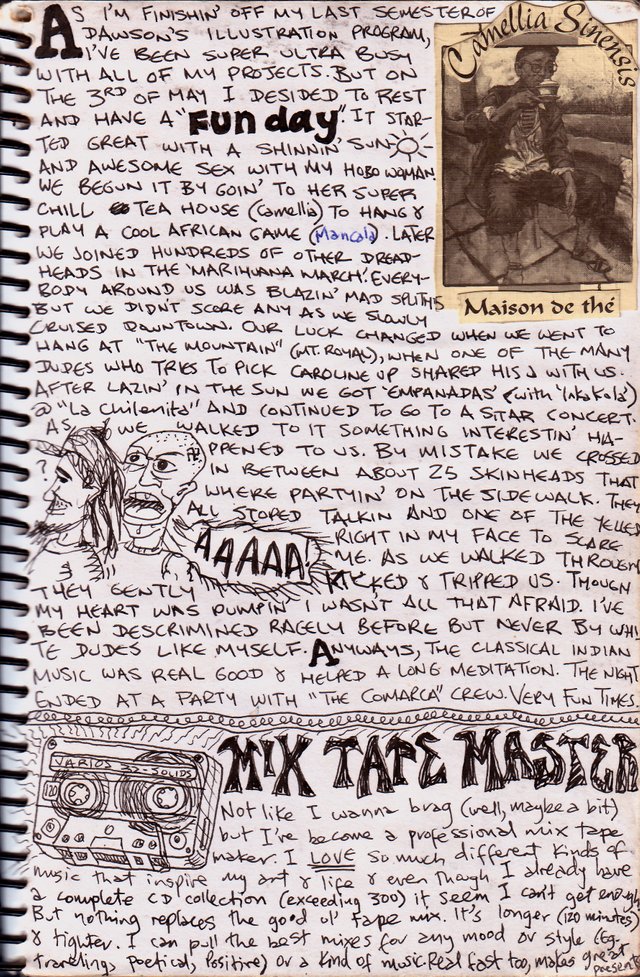 As I'm finishin' off my last semester of
Dawson's illustration program,
I've been super ultra busy
with all of my projects. But on
the 3rd of May I desided to rest
and have a "Fun day" It star-
ted great with a shinnin' sun
and awesome sex with my hobo woman
we begun it by goin' to her super
chill tea house (Camellia) to hang &
play a cool African game (Mancala). Later
we joined hundreds of other dread-
heads in the 'Marihuana March'. Every-
body around us was blazin' mad spliffs
but we didn't score any as we slowly
cruised downtown. Our luck changed when we went to
hang at "The Mountain" (Mt. Royal), when one of the many
dudes who tries to pick Caroline up shared his J with us.
After lazin' in the sun we got 'empanadas' (with 'Inkakola')
@ "La Chilenita" and continued to go to a sitar concert.
As we walked to it something interestin' ha-
ppened to us. By mistake we crossed
in between about 25 skinheads that
where partyin' on the sidewalk. They
all stoped talkin and one of the yelled
right in my face to scare
me. As we walked through
they gently kicked & tripped us. Though
my heart was pumpin' I wasn't all that afraid. I've
been descrimined racely before but never by whi
te dudes like myself. Anyways, the classical Indian
music was real good & helped a long meditation. The night
ended at a party with "The Comarca" crew. Very fun times.
Camellia Sinensis
Maison de thé
?
AAAAA!
Mix Tape Master
VARIOS
SOLIDS
120
Not like I wanna brag (well, maybe a bit)
but I've become a professional mix tape
maker. I LOVE so much different kinds of
music that inspire my art & life & even though I already have
a complete CD collection (exceeding 300) it seem I can't get enough
But nothing replaces the good ol' tape mix. It's longer (120 minutes)
& tighter. I can pull the best mixes for any mood or style (Eg.
traveling, poetical, positive) or a kind of music. Real fast too, makes great presents